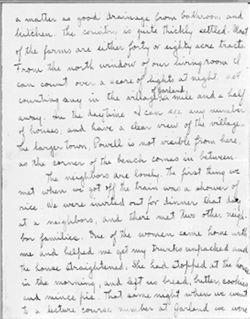 a matter as good drainage from bathroom and
kitchen. The country is quite thickly settled. Most
of the farms are either forty or eighty acre tracts.
From the north window of our living room I
can count over a score of lights at night, not
counting any in the village, Garland, a mile and a half
away. In the daytime I can see any number
of houses, and have a clear view of the village.
The larger town, Powell is not visible from here,
as the corner of the bench comes in between.
The neighbors are lovely. The first thing we
met when we got off the train was a shower of
rice. We were invited out for dinner that day
at a neighbors, and there met two other neigh-
bor families. One of the women came home with
me and helped me get my trunks unpacked and
the house straightened. She had stopped at the
in the morning, and left us bread, butter, cookies
and mince pie. That same night when we went
to a lecture course number at Garland we were